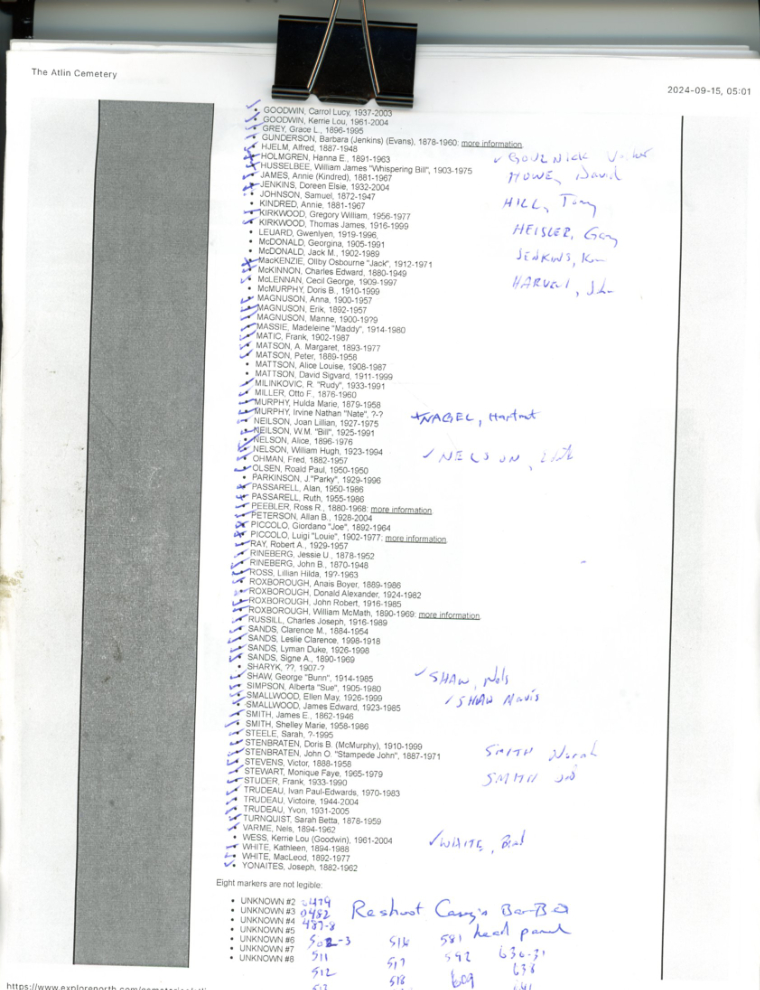 The Atlin Cemetery
2024-09-15, 05:01
GOODWIN, Carrol Lucy, 1937-2003
GOODWIN, Kerrie Lou, 1961-2004
GREY, Grace L., 1896-1995
GUNDERSON, Barbara (Jenkins) (Evans), 1878-1960: more information
HJELM, Alfred, 1887-1948
HOLMGREN, Hanna E., 1891-1963
HUSSELBEE, William James "Whispering Bill", 1903-1975
JAMES, Annie (Kindred), 1881-1967
HOWE, David
JENKINS, Doreen Elsie, 1932-2004
JOHNSON, Samuel, 1872-1947
KINDRED, Annie, 1881-1967
HILL, Tony
KIRKWOOD, Gregory William, 1956-1977
KIRKWOOD, Thomas James, 1916-1999
LEUARD, Gwenlyen, 1919-1996
HEISLER, Gary
McDONALD, Georgina, 1905-1991
McDONALD, Jack M., 1902-1989
MacKENZIE, Oliby Osbourne "Jack", 1912-1971
JENKINS, Ken
McKINNON, Charles Edward, 1880-1949
McLENNAN, Cecil George, 1909-1997
McMURPHY, Doris B., 1910-1999
MAGNUSON, Anna, 1900-1957
MAGNUSON, Erik, 1892-1957
MAGNUSON, Manne, 1900-19?9
MASSIE, Madeleine "Maddy", 1914-1980
MATIC, Frank, 1902-1987
MATSON, A. Margaret, 1893-1977
MATSON, Peter, 1889-1958
MATTSON, Alice Louise, 1908-1987
MATTSON, David Sigvard, 1911-1999
MILINKOVIC, R. "Rudy", 1933-1991
MILLER, Otto F., 1876-1960
MURPHY, Hulda Marie, 1879-1958
MURPHY, Irvine Nathan "Nate", ?-?
NAGEL, Hartmut
NEILSON, Joan Lillian, 1927-1975
NEILSON, W.M. "Bill", 1925-1991
NELSON, Alice, 1896-1976
NELSON, William Hugh, 1923-1994
NELSON,
OHMAN, Fred, 1882-1957
OLSEN, Roald Paul, 1950-1950
PARKINSON, J."Parky", 1929-1996
PASSARELL, Alan, 1950-1986
PASSARELL, Ruth, 1955-1986
PEEBLER, Ross R., 1880-1968: more information
PETERSON, Allan B., 1928-2004
PICCOLO, Giordano "Joe", 1892-1964
PICCOLO, Luigi "Louie", 1902-1977: more information
RAY, Robert A., 1929-1957
RINEBERG, Jessie U., 1878-1952
RINEBERG, John B., 1870-1948
ROSS, Lillian Hilda, 19?-1963
ROXBOROUGH, Anais Boyer, 1889-1986
ROXBOROUGH, Donald Alexander, 1924-1982
ROXBOROUGH, John Robert, 1916-1985
ROXBOROUGH, William McMath, 1890-1969: more information
RUSSILL, Charles Joseph, 1916-1989
SANDS, Clarence M., 1884-1954
SANDS, Leslie Clarence, 1998-1918
SANDS, Lyman Duke, 1926-1998
SANDS, Signe A., 1890-1969
SHARYK, ??, 190?-?
SHAW, George "Bunn", 1914-1985
SHAW, Nels
SIMPSON, Alberta "Sue", 1905-1980
SMALLWOOD, Ellen May, 1926-1999
SHAW Mavis
SMALLWOOD, James Edward, 1923-1985
SMITH, James E., 1862-1946
SMITH, Shelley Marie, 1958-1986
STEELE, Sarah, ?-1995
STENBRATEN, Doris B. (McMurphy), 1910-1999
SMITH Norah
STENBRATEN, John O. "Stampede John", 1887-1971
STEVENS, Victor, 1888-1958
STEWART, Monique Faye, 1965-1979
SMITH
STUDER, Frank, 1933-1990
TRUDEAU, Ivan Paul-Edwards, 1970-1983
TRUDEAU, Victoire, 1944-2004
TRUDEAU, Yvon, 1931-2005
TURNQUIST, Sarah Betta, 1878-1959
VARME, Nels, 1894-1962
WESS, Kerrie Lou (Goodwin), 1961-2004
WHITE, Brad
WHITE, Kathleen, 1894-1988
WHITE, MacLeod, 1892-1977
YONAITES, Joseph, 1882-1962
Eight markers are not legible:
UNKNOWN #2 0479
UNKNOWN #3 0482
UNKNOWN #4 487-8
Reshoot Casey's Bar-B-Q
UNKNOWN #5
head panel
UNKNOWN #6 502-3 516 581
UNKNOWN #7 511 517 592 630-31
UNKNOWN #8
512 518 609 638